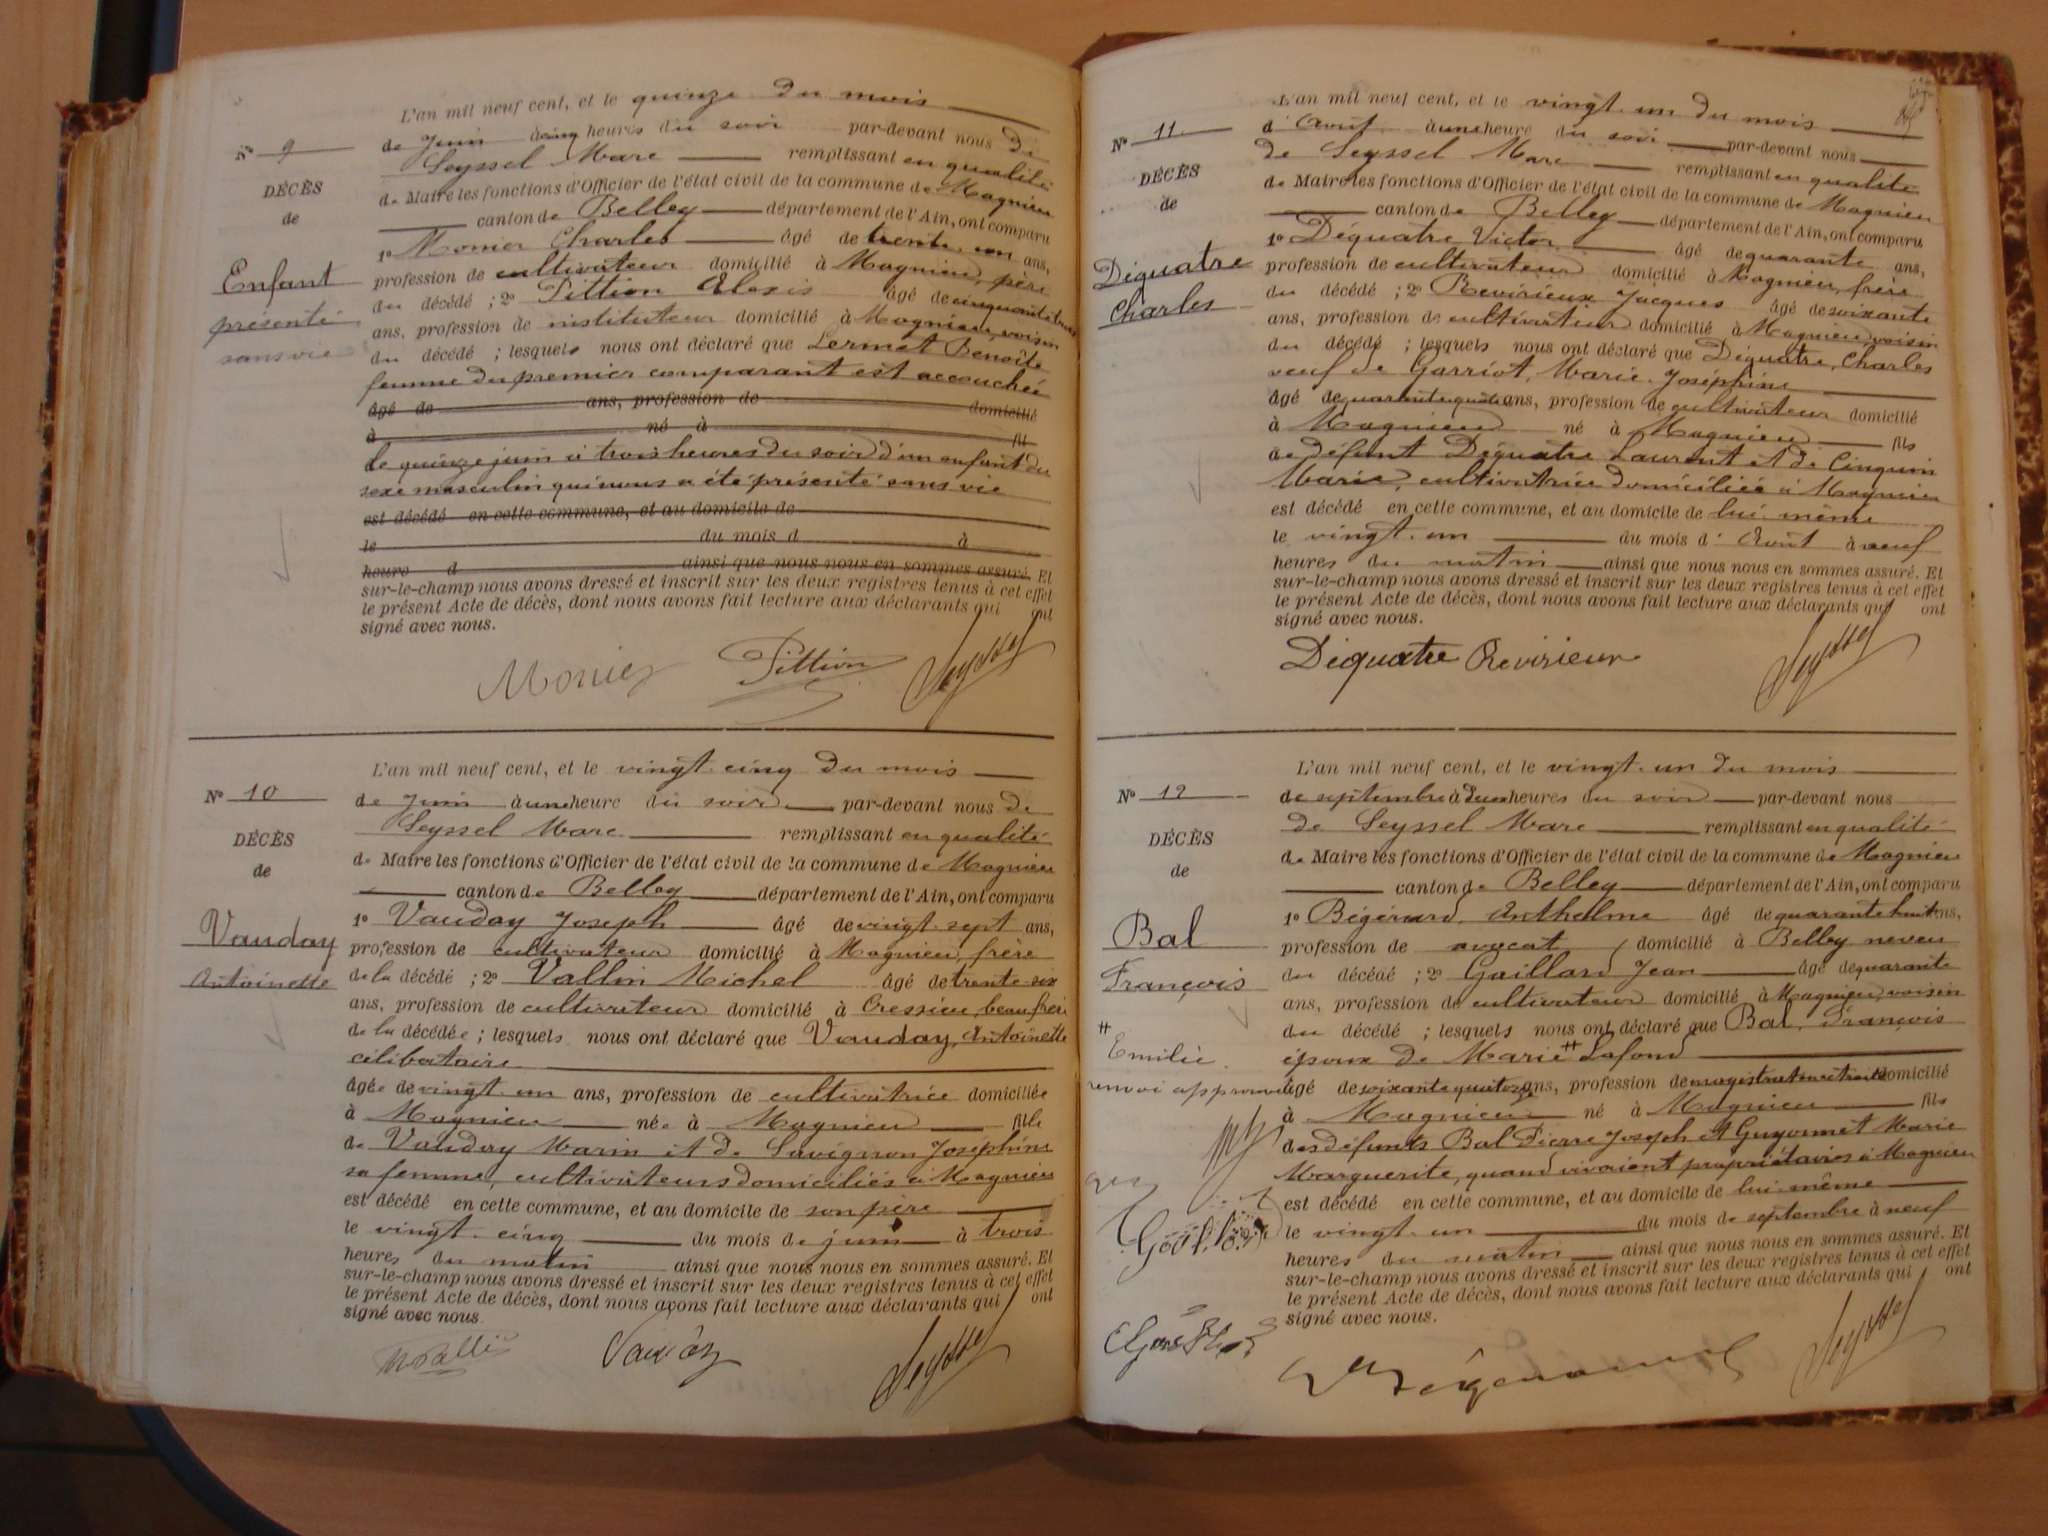 L'an mil neuf cent, et le quinze du mois
N° 9
de Juin à cinq heures du soir par-devant nous de
Seyssel Marc remplissant en qualité
DÉCÈS
de Maire les fonctions d'Officier de l'état civil de la commune de Magnieu
de
canton de Belley département de l'Ain, ont comparu
1° Monier Charles âgé de trente un ans,
Enfant
présenté
sans vie
profession de cultivateur domicilié à Magnieu, père
du décédé ; 2° Pittion Alexis âgé de
ans, profession de instituteur domicilié à Magnieu, voisin
du décédé ; lesquels nous ont déclaré que Lermet Benoîte
femme du premier comparant est accouchée
âgé de ans, profession de domicilié
à né à fil
le quinze juin à trois heures du soir d'un enfant du
sexe masculin qui nous a été présenté sans vie
est décédé en cette commune, et au domicile de
le du mois d à
heure d ainsi que nous nous en sommes assuré. Et
sur-le-champ nous avons dressé et inscrit sur les deux registres tenus à cet effet
le présent Acte de décès, dont nous avons fait lecture aux déclarants qui ont
signé avec nous.
Monier Pittion Seyssel
L'an mil neuf cent, et le vingt cinq du mois
N° 10
de Juin à une heure du soir par-devant nous de
Seyssel Marc remplissant en qualité
DÉCÈS
de Maire les fonctions d'Officier de l'état civil de la commune de Magnieu
de
canton de Belley département de l'Ain, ont comparu
Vauday
Antoinette
1° Vauday Joseph âgé de vingt sept ans,
profession de cultivateur domicilié à Magnieu, frère
de la décédé ; 2° Vallin Michel âgé de trente-six
ans, profession de cultivateur domicilié à Cressieu, beau frère
de la décédée ; lesquels nous ont déclaré que Vauday, Antoinette
célibataire
âgée de vingt un ans, profession de cultivatrice domiciliée
à Magnieu née à Magnieu fille
de Vauday Marin et de Savignon Joséphine
sa femme, cultivateurs domiciliés à Magnieu
est décédé en cette commune, et au domicile de son père
le vingt cinq du mois de juin à trois
heures du matin ainsi que nous nous en sommes assuré. Et
sur-le-champ nous avons dressé et inscrit sur les deux registres tenus à cet effet
le présent Acte de décès, dont nous avons fait lecture aux déclarants qui ont
signé avec nous.
Vauday Seyssel
L'an mil neuf cent, et le vingt un du mois
N° 11
d'Août à une heure du soir par-devant nous
de Seyssel Marc remplissant en qualité
DÉCÈS
de Maire les fonctions d'Officier de l'état civil de la commune de Magnieu
de
canton de Belley département de l'Ain, ont comparu
1° Déquatre Victor âgé de quarante ans,
Déquatre
Charles
profession de cultivateur domicilié à Magnieu, frère
du décédé ; 2° Revirieux Jacques âgé de soixante
ans, profession de cultivateur domicilié à Magnieu, voisin
du décédé ; lesquels nous ont déclaré que Déquatre, Charles
veuf de Garriot, Marie Joséphine
âgé de quarante quatre ans, profession de cultivateur domicilié
à Magnieu né à Magnieu fils
de défunt Déquatre Laurent et de Cinquin
Marie, cultivatrice domiciliée à Magnieu
est décédé en cette commune, et au domicile de lui même
le vingt un du mois d'Août à neuf
heures du matin ainsi que nous nous en sommes assuré. Et
sur-le-champ nous avons dressé et inscrit sur les deux registres tenus à cet effet
le présent Acte de décès, dont nous avons fait lecture aux déclarants qui ont
signé avec nous.
Déquatre Revirieux Seyssel
L'an mil neuf cent, et le vingt un du mois
N° 12
de septembre à deux heures du soir par-devant nous
de Seyssel Marc remplissant en qualité
DÉCÈS
de Maire les fonctions d'Officier de l'état civil de la commune de Magnieu
de
canton de Belley département de l'Ain, ont comparu
Bal
François
1° Bégérard, Anthelme âgé de quarante huit ans,
profession de avocat domicilié à Belley neveu
du décédé ; 2° Gaillard Jean âgé de quarante
ans, profession de cultivateur domicilié à Magnieu, voisin
du décédé ; lesquels nous ont déclaré que Bal, François
# Emilie
renvoi approuvé
époux de Marie # Lafond
âgé de soixante quatorze ans, profession de magistrat en retraite domicilié
à Magnieu né à Magnieu fils
des défunts Bal Pierre Joseph et Guyonnet Marie
Marguerite, quand vivaient propriétaires à Magnieu
est décédé en cette commune, et au domicile de lui même
le vingt un du mois de septembre à neuf
heures du matin ainsi que nous nous en sommes assuré. Et
sur-le-champ nous avons dressé et inscrit sur les deux registres tenus à cet effet
le présent Acte de décès, dont nous avons fait lecture aux déclarants qui ont
signé avec nous.
Seyssel